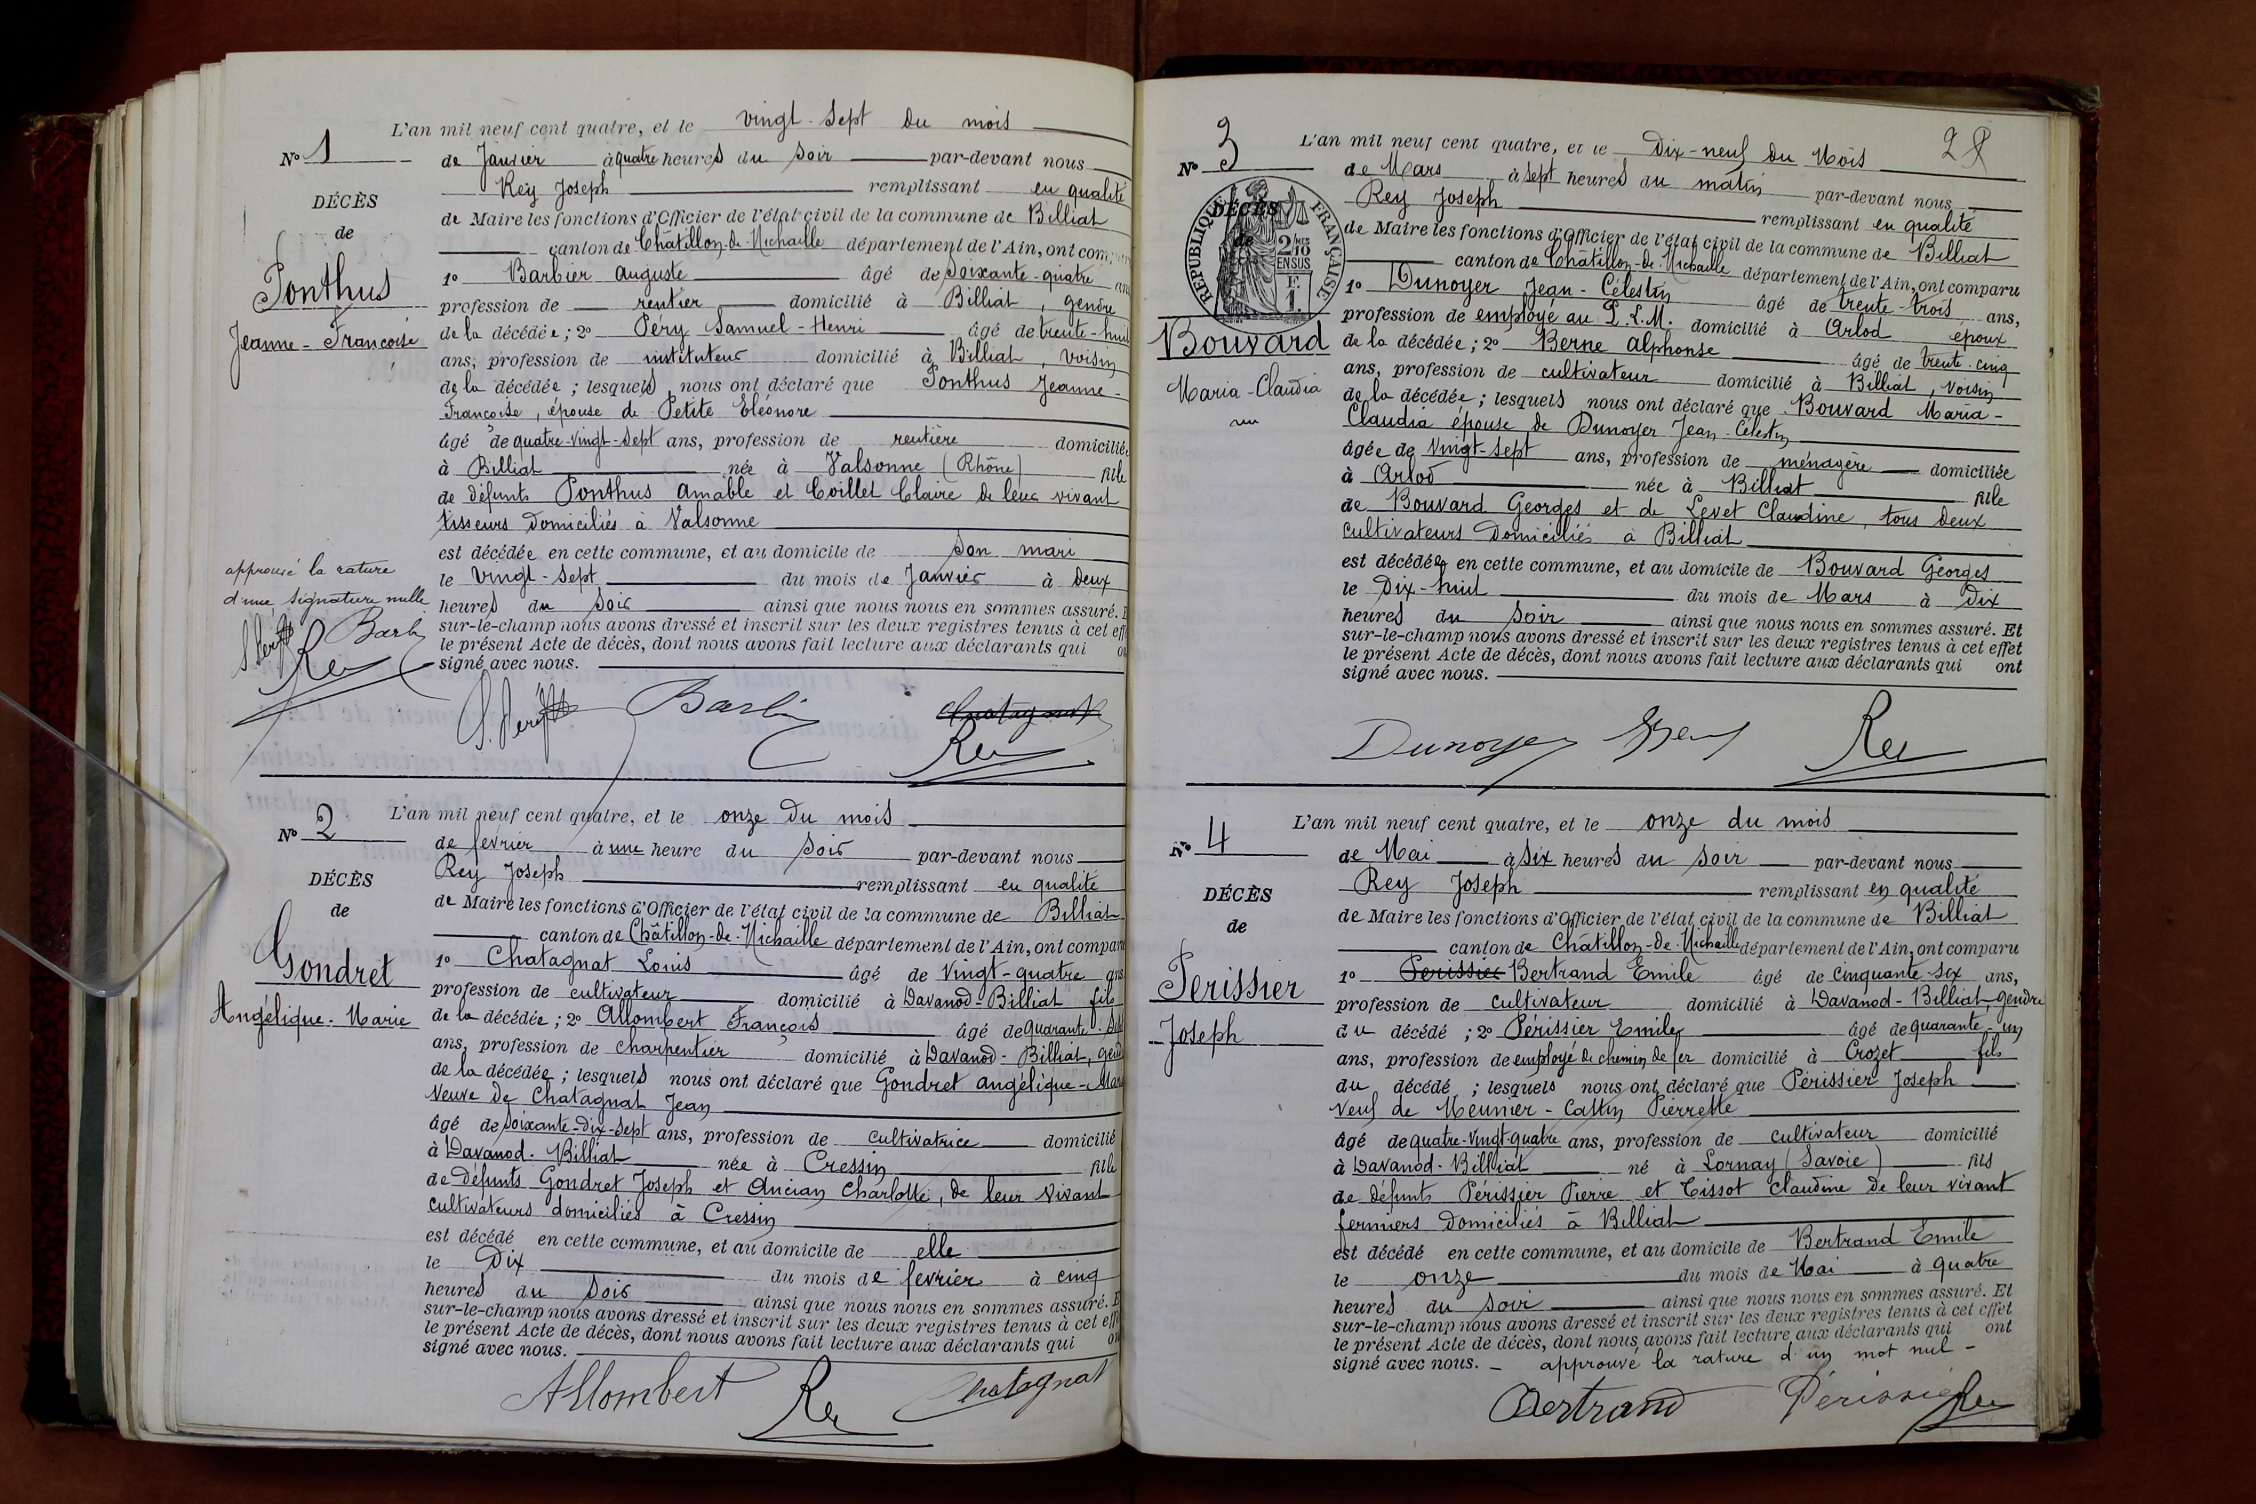 L'an mil neuf cent quatre, et le vingt-sept du mois
N° 1
de Janvier à quatre heures du soir par-devant nous
Rey Joseph remplissant en qualité
DÉCÈS
de Maire les fonctions d'Officier de l'état civil de la commune de Billiat
de
canton de Châtillon-de-Michaille département de l'Ain, ont com
1° Barbier auguste âgé de soixante-quatre ans
Ponthus
profession de rentier domicilié à Billiat, gendre
Jeanne-Françoise
de la décédée; 2° Péry Samuel-Henri âgé de trente-huit
ans, profession de instituteur domicilié à Billiat, voisin
de la décédée; lesquels nous ont déclaré que Ponthus Jeanne-
Françoise, épouse de Petite Eléonore
âgé de quatre-vingt-sept ans, profession de rentière domiciliée
à Billiat née à Valsonne (Rhône) fille
de défunts Ponthus Amable et Coillet Claire de leur vivant
tisseurs domiciliés à Valsonne
est décédée en cette commune, et au domicile de son mari
le vingt-sept du mois de Janvier à deux
heures du soir ainsi que nous nous en sommes assuré. E
sur-le-champ nous avons dressé et inscrit sur les deux registres tenus à cet eff
le présent Acte de décès, dont nous avons fait lecture aux déclarants qui on
signé avec nous.
approuvé la rature
d'une signature nulle
S. Péry Barbier
Rey
S. Péry Barbier Chatagnat
Rey
L'an mil neuf cent quatre, et le onze du mois
N° 2
de février à une heure du soir par-devant nous
Rey Joseph remplissant en qualité
DÉCÈS
de Maire les fonctions d'Officier de l'état civil de la commune de Billiat
de
canton de Châtillon-de-Michaille département de l'Ain, ont comparu
1° Chatagnat Louis âgé de vingt-quatre ans
Gondret
profession de cultivateur domicilié à Davanod-Billiat fils
Angélique-Marie
de la décédée; 2° Allombert François âgé de quarante-sept
ans, profession de charpentier domicilié à Davanod-Billiat, gend
de la décédée; lesquels nous ont déclaré que Gondret angélique-Mar
veuve de Chatagnat Jean
âgé de soixante-dix-sept ans, profession de cultivatrice domicilié
à Davanod-Billiat née à Cressin fille
de défunts Gondret Joseph et Ancian Charlotte, de leur vivant
cultivateurs domiciliés à Cressin
est décédé en cette commune, et au domicile de elle
le Dix du mois de février à cinq
heures du soir ainsi que nous nous en sommes assuré. E
sur-le-champ nous avons dressé et inscrit sur les deux registres tenus à cet eff
le présent Acte de décès, dont nous avons fait lecture aux déclarants qui on
signé avec nous.
Allombert Rey Chatagnat
28
L'an mil neuf cent quatre, et le Dix-neuf du Mois
N° 3
de Mars à sept heures du matin par-devant nous
Rey Joseph remplissant en qualité
DÉCÈS
de
RÉPUBLIQUE FRANÇAISE
2/10 MES
EN SUS
F.
1.
de Maire les fonctions d'Officier de l'état civil de la commune de Billiat
canton de Châtillon-de-Michaille département de l'Ain, ont comparu
1° Dunoyer Jean-Célestin âgé de trente-trois ans,
profession de employé au P.L.M. domicilié à Arlod époux
Bouvard
Maria-Claudia
de la décédée; 2° Berne Alphonse âgé de trente-cinq
ans, profession de cultivateur domicilié à Billiat, voisin
de la décédée; lesquels nous ont déclaré que Bouvard Maria-
Claudia épouse de Dunoyer Jean-Célestin
âgée de vingt-sept ans, profession de ménagère domiciliée
à Arlod née à Billiat fille
de Bouvard Georges et de Levet Claudine, tous deux
cultivateurs Domiciliés à Billiat
est décédée en cette commune, et au domicile de Bouvard Georges
le Dix-huit du mois de Mars à Dix
heures du soir ainsi que nous nous en sommes assuré. Et
sur-le-champ nous avons dressé et inscrit sur les deux registres tenus à cet effet
le présent Acte de décès, dont nous avons fait lecture aux déclarants qui ont
signé avec nous.
Dunoyer Rey
L'an mil neuf cent quatre, et le onze du mois
N° 4
de Mai à six heures du soir par-devant nous
Rey Joseph remplissant en qualité
DÉCÈS
de Maire les fonctions d'Officier de l'état civil de la commune de Billiat
de
canton de Châtillon-de-Michaille département de l'Ain, ont comparu
1° Perissier Bertrand Emile âgé de cinquante-six ans,
Perissier
profession de cultivateur domicilié à Davanod-Billiat, gendre
Joseph
du décédé; 2° Périssier Emile âgé de quarante-un
ans, profession de employé de chemin de fer domicilié à Crozet fils
du décédé; lesquels nous ont déclaré que Périssier Joseph
veuf de Meunier-Cattin Pierrette
âgé de quatre-vingt-quatre ans, profession de cultivateur domicilié
à Davanod-Billiat né à Lornay (Savoie) fils
de défunts Périssier Pierre et Tissot Claudine de leur vivant
fermiers Domiciliés à Billiat
est décédé en cette commune, et au domicile de Bertrand Emile
le onze du mois de Mai à quatre
heures du soir ainsi que nous nous en sommes assuré. Et
sur-le-champ nous avons dressé et inscrit sur les deux registres tenus à cet effet
le présent Acte de décès, dont nous avons fait lecture aux déclarants qui ont
signé avec nous. - approuvé la rature d'un mot nul -
Bertrand Périssier Rey